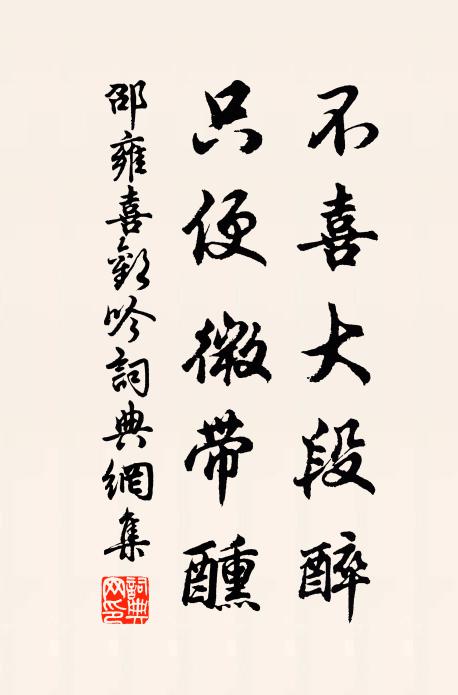 不喜大段醉
只便微带醺
邵雍喜歡吟詞典網集
詞典网印